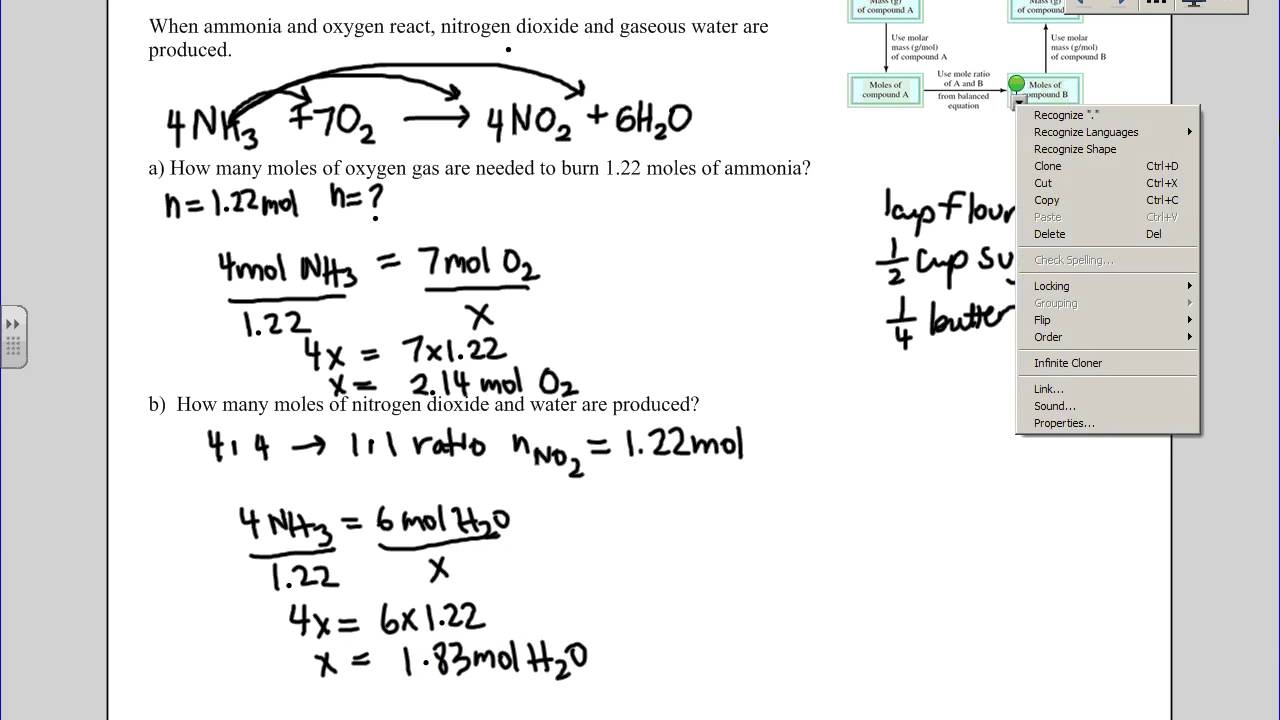 When ammonia and oxygen react, nitrogen dioxide and gaseous water are
produced.
4NH3 + 7O2 → 4NO2 + 6H2O
a) How many moles of oxygen gas are needed to burn 1.22 moles of ammonia?
n = 1.22mol n = ?
4mol NH3 = 7mol O2
1.22 x
4x = 7x1.22
x = 2.14 mol O2
b) How many moles of nitrogen dioxide and water are produced?
4:4 → 1:1 ratio nNO2 = 1.22mol
4 NH3 = 6mol H2O
1.22 x
4x = 6x1.22
x = 1.83mol H2O
Mass (g)
of compound A
of compound B
Use molar
mass (g/mol)
of compound A
Use molar
mass (g/mol)
of compound B
Moles of
compound A
Use mole ratio
of A and B
from balanced
equation
Moles of
1cup flour
1/2 cup
1/4 butter
Recognize "."
Recognize Languages
Recognize Shape
Clone Ctrl+D
Cut Ctrl+X
Copy Ctrl+C
Paste Ctrl+V
Delete Del
Check Spelling...
Locking
Grouping
Flip
Order
Infinite Cloner
Link...
Sound...
Properties...